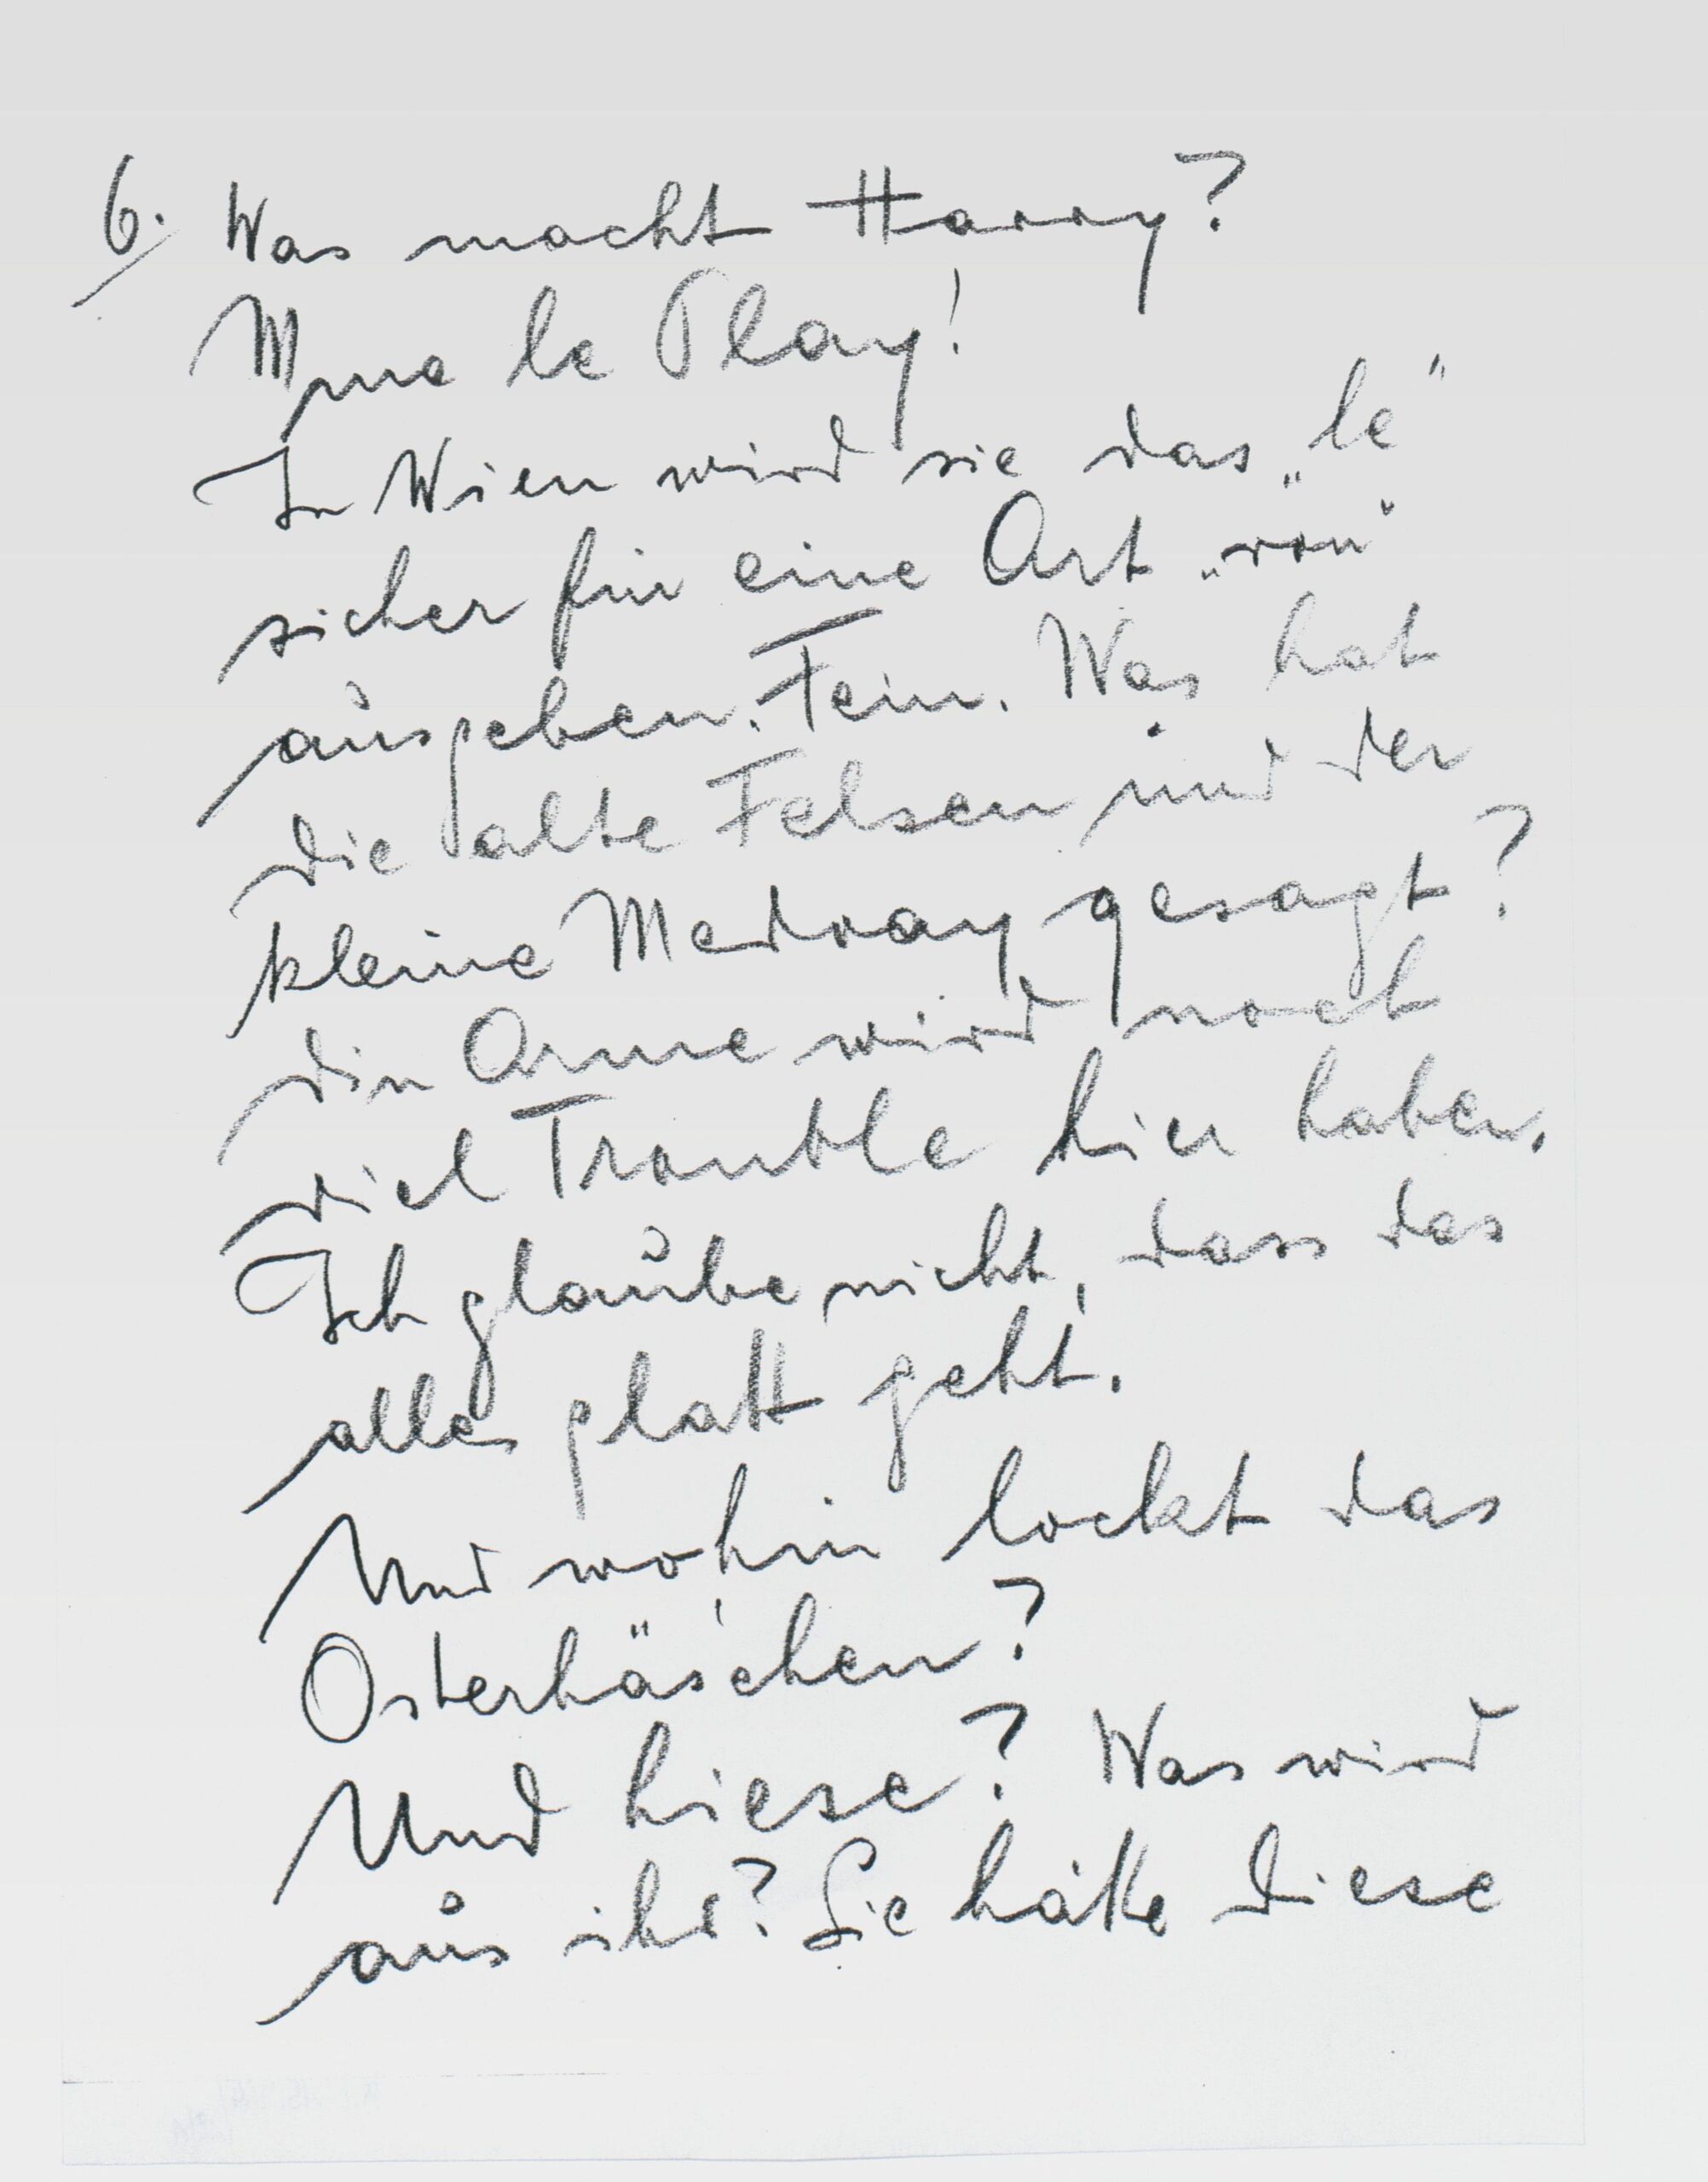 6. Was macht Harry?
Mme le Play!
In Wien wird sie das „le“
sicher für eine Art „von“
ausgeben. Fein. Was hat
die alte Felsen und der
kleine Medray gesagt?
din Arme wird noch
viel Trouble hier haben.
Ich glaube nicht, dass das
alles glatt geht.
Und wohin lockt das
Osterhäschen?
Und hiese? Was wird
aus ihr? Sie hätte diese